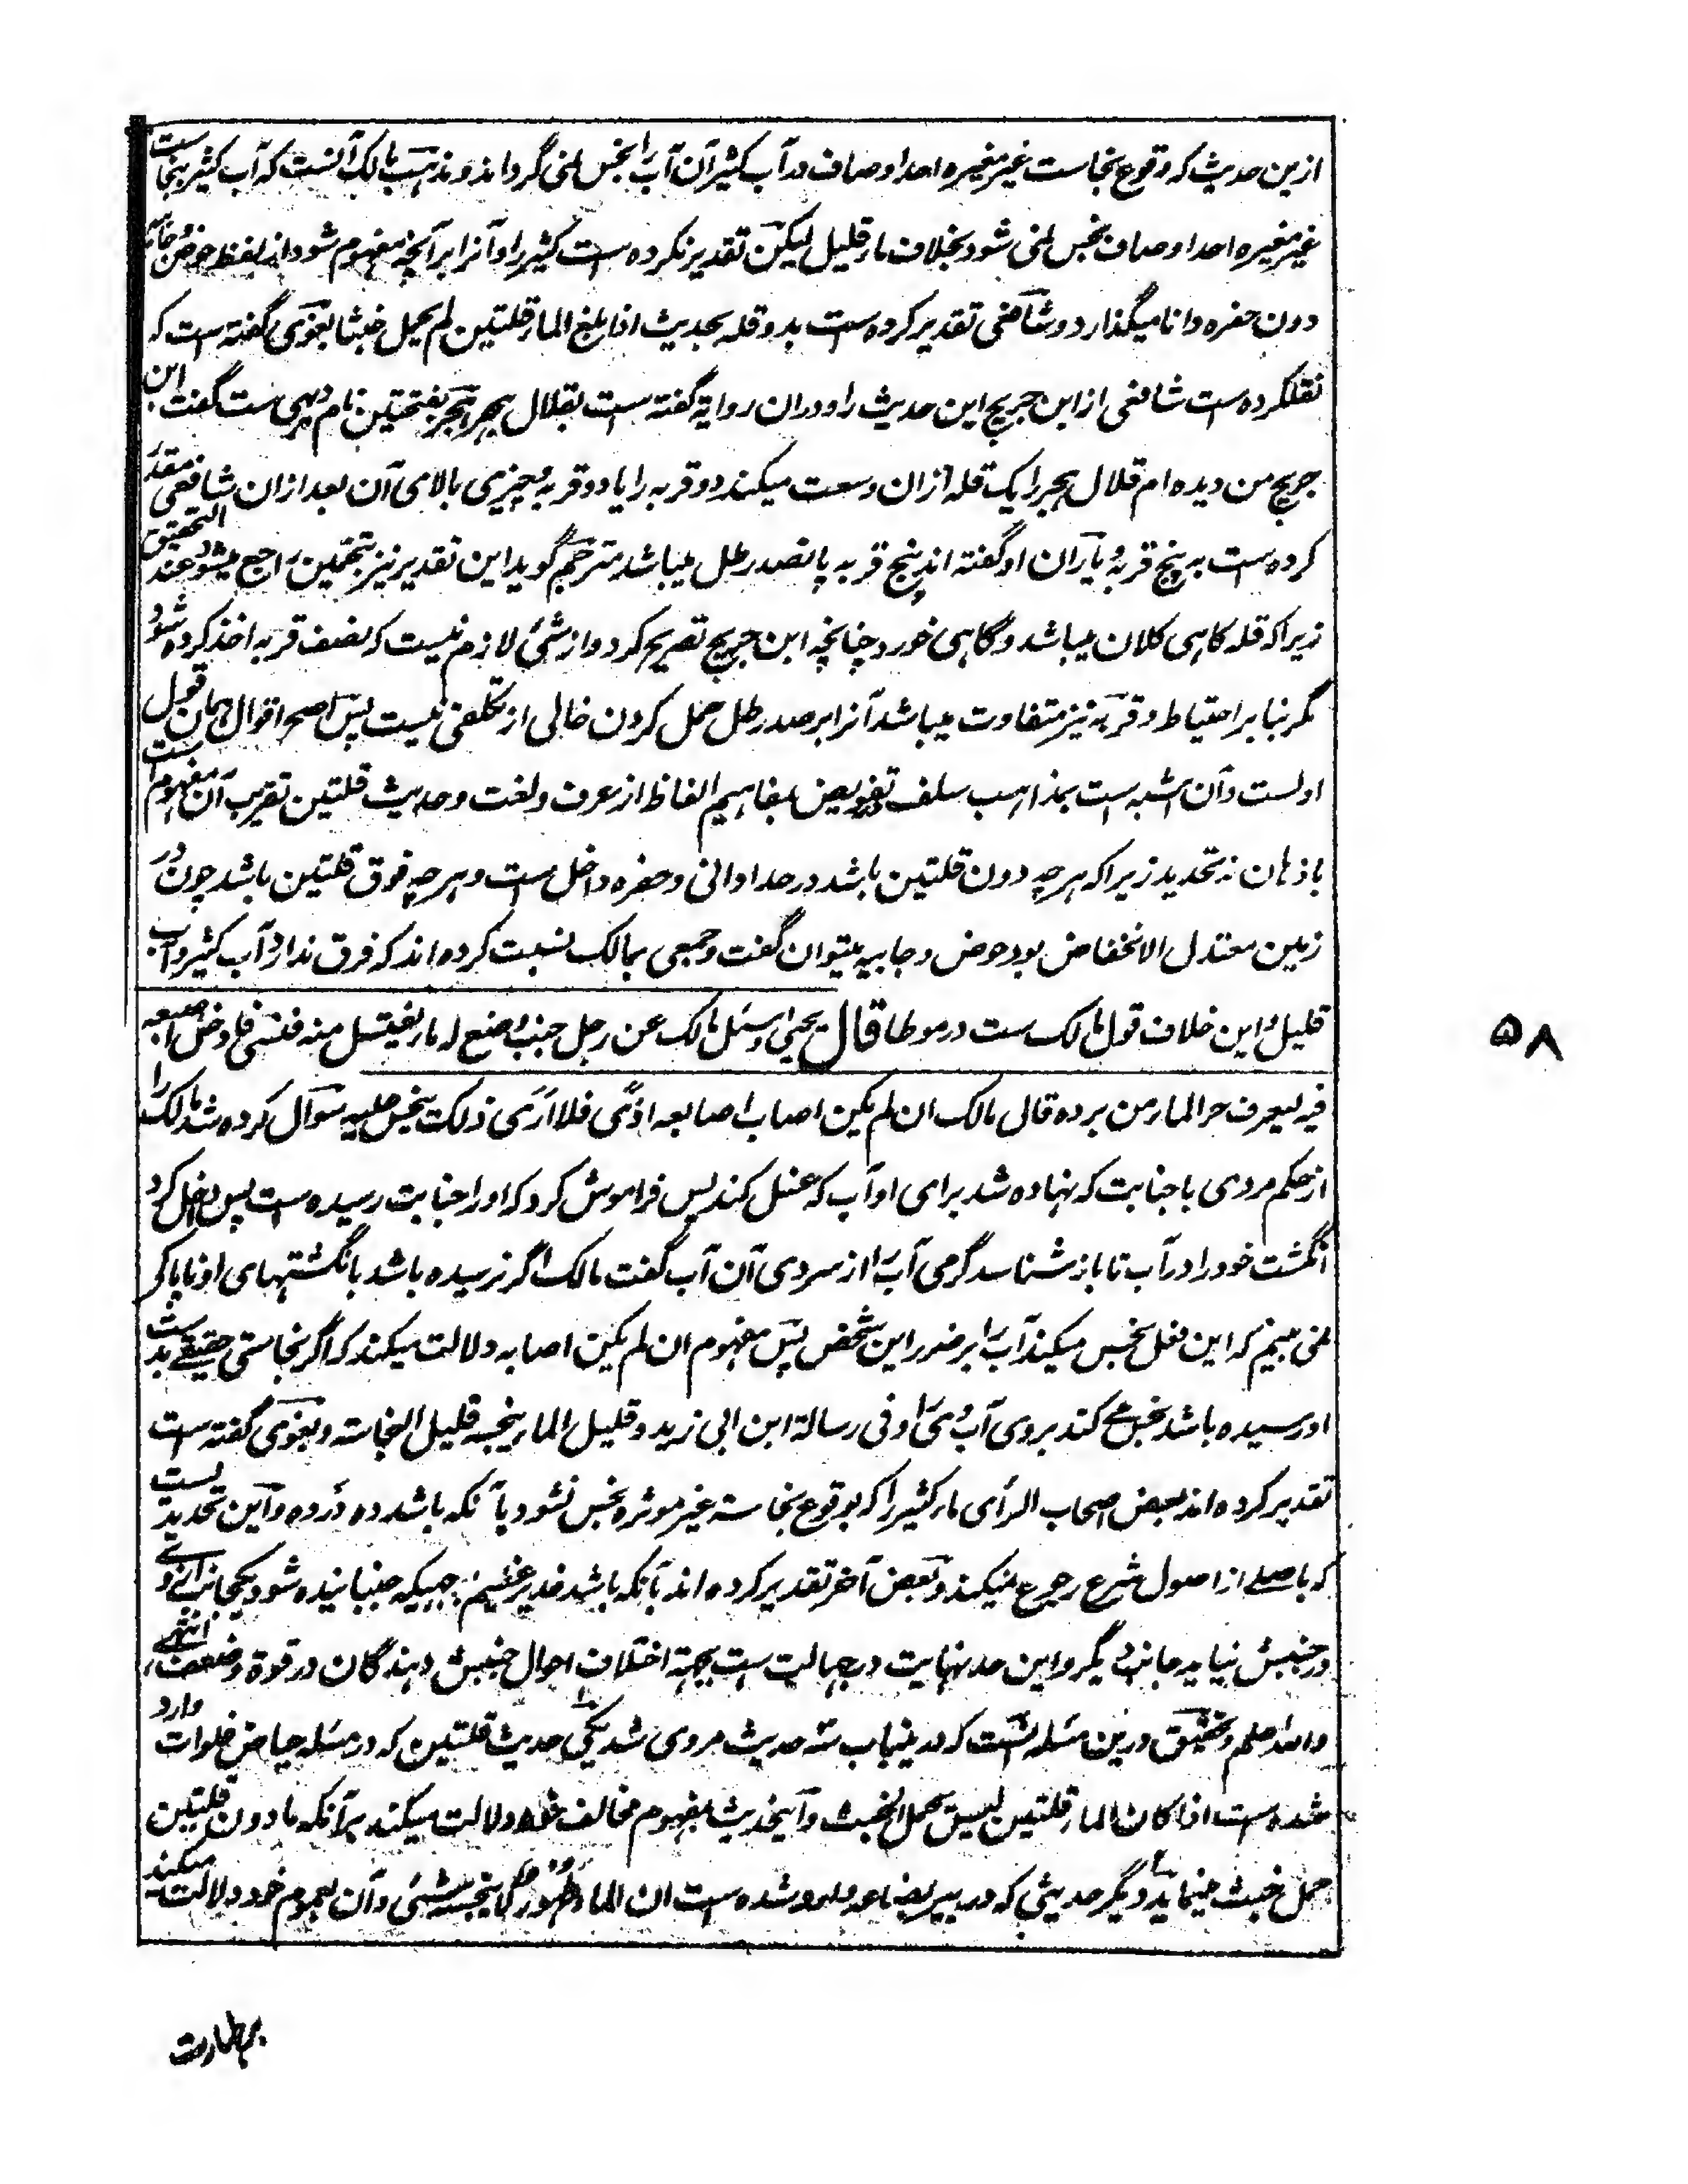 ازین حدیث که وقوع نجاست غیر مغیره احد اوصاف در آب کثیر آن آب را نجس نمی گرداند و مذهب مالک آنست که آب کثیر بنجاست
غیر مغیره احد اوصاف نجس نمی شود بخلاف ماء قلیل لیکن تقدیر نکرده است کثیر را و آنرا بر آنچه مفهوم شود از لفظ حوض و جابیه
دون حفره و انا میگذارد و شافعی تقدیر کرده است بدو قله بحدیث اذا بلغ الماء قلتین لم یحمل خبثا بغوی گفته است که
نقلکرده است شافعی از ابن جریج این حدیث را و دران روایة گفته است بقلال هجر و هجر بفتحتین نام دهی ست گفت ابن
جریج من دیده ام قلال هجر را یک قله ازان وسعت میکند دو قربه را یا دو قربه و چیزی بالای آن بعد ازان شافعی مقدر
کرده است به پنج قربه و یاران او گفته اند پنج قربه پانصد رطل میباشد مترجم گوید این تقدیر نیز بتخمین راجع میشود عند التحقیق
زیرا که قله کاهی کلان میباشد و گاهی خورد چنانچه ابن جریج تصریح کرد و از شیٔ لازم نیست که نصف قربه اخذ کرده شود
مگر بنا بر احتیاط و قربه نیز متفاوت میباشد آنرا بر صد رطل حمل کردن خالی از تکلفی نیست پس اصح اقوال همان قول
اولست و آن اشبه است بمذاهب سلف تفویض بمفاهیم الفاظ از عرف و لغت و حدیث قلتین تقریب آن مفهوم است
باذهان نه تحدید زیرا که هر چه دون قلتین باشد در حد اوانی و حفره داخل ست و هر چه فوق قلتین باشد چون در
زمین معتدل الانخفاض بود حوض و جابیه میتوان گفت و جمعی بمالک نسبت کرده اند که فرق ندارد آب کثیر و آب
قلیل و این خلاف قول مالک ست در موطا قال یحیی و سئل مالک عن رجل جنب وضع له ماء یغتسل منه فنسی فادخل اصبعه
فیه لیعرف حر الماء من برده قال مالک ان لم یکن اصاب اصابعه اذًی فلا اَرَی ذلک ینجس علیه سوال کرده شد مالک را
از حکم مردی با جنابت که نهاده شد برای او آب که غسل کند پس فراموش کرد که او را جنابت رسیده است پس داخل کرد
انگشت خود را در آب تا باز شناسد گرمی آب را از سردی آن آب گفت مالک اگر نرسیده باشد بانگشتهای او ناپاکی
نمی بینم که این فعل نجس میکند آب را بر ضرر این شخص پس مفهوم ان لم یکن اصابه دلالت میکند که اگر نجاستی حقیقے بدست
او رسیده باشد نجس می کند بروی آب وی را و فی رسالة ابن ابی زید و قلیل الماء ینجسه قلیل النجاسة و بغوی گفته است
تقدیر کرده اند بعض اصحاب الرأی ماء کثیر را که بوقوع نجاسة غیر موثره نجس نشود بآنکه باشد ده در ده و این تحدیدیست
که باصلے از اصول شرع رجوع نمیکند و بعض آخر تقدیر کرده اند بآنکه باشد غدیر عظیم بحیثیکه جنبانیده شود یکجانب از وے
در جنبش نیاید جانب دیگر و این حد نهایت در جهالت ست بجهة اختلاف احوال جنبش دهندگان در قوة و ضعف انتهے
والله اعلم و تحقیق درین مسئله آنست که درینباب سه حدیث مروی شد یکی حدیث قلتین که در مسئله حیاض فلوات وارد
شده ست اذا کان الماء قلتین لیس یحمل الخبث و اینحدیث بمفهوم مخالف خود دلالت میکند بر آنکه ما دون قلتین
حمل خبث مینماید دیگر حدیثی که در بیر بضاعه وارد شده ست ان الماء طهور لا ینجسه شیٔ و آن بعموم خود دلالت میکند
بر طهارت
۵۸